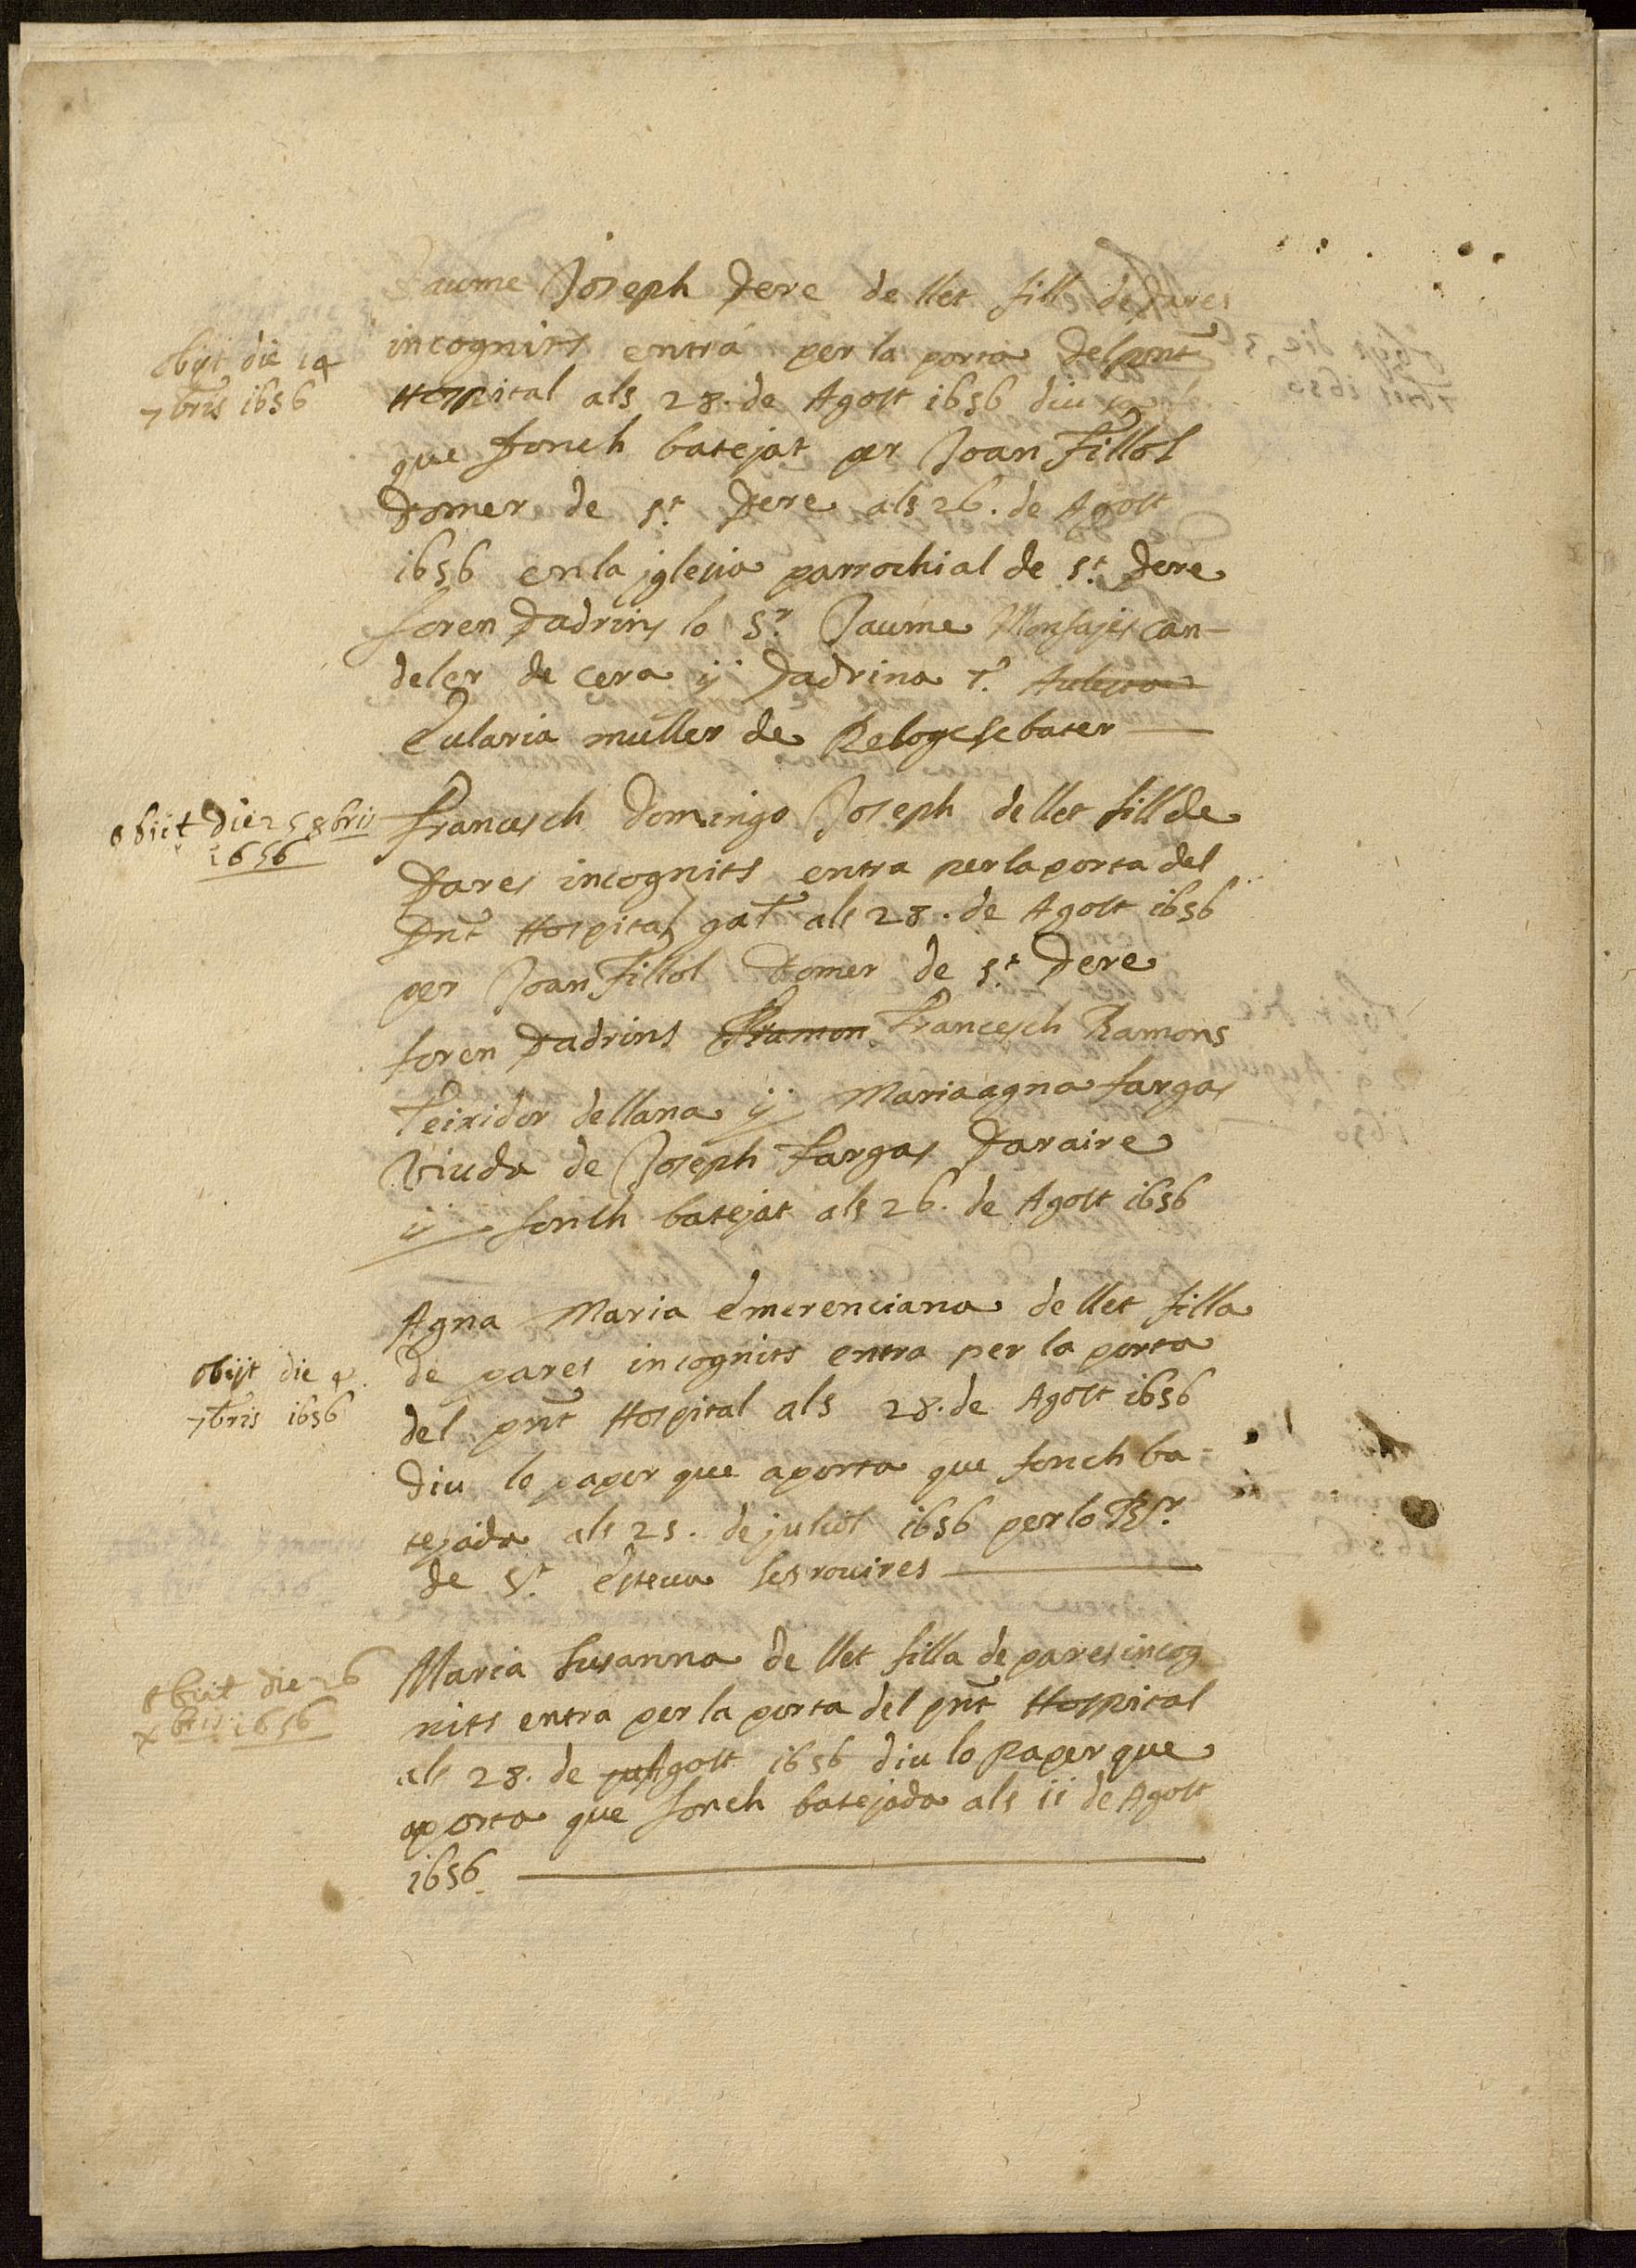 Jaume Joseph Pere de llet fill de Pares
obijt die 14
7bris 1656
incognits entrá per la porta del pnt
Hospital als 28. de Agost 1656 diu
que fonch batejat per Joan Fillol
Domer de St. Pere als 26. de Agost
1656 en la iglesia parrochial de St. Pere
foren Padrins lo Sr. Jaume Monsajes Can-
deler de cera ÿ Padrina
Eularia muller de Reloge sebater
obiit die 25 8bris
1656
Francesch Domingo Joseph de llet fill de
Pares incognits entra per la porta del
Pnt Hospital gat als 28. de Agost 1656
per Joan Fillol Domer de St. Pere
foren Padrins Framon Francesch Ramons
Teixidor de llana ÿ Maria agna fargas
Viuda de Joseph Fargas Paraire
ÿ fonch batejat als 26. de Agost 1656
Agna Maria Emerenciana de llet filla
obijt die 4
7bris 1656
de pares incognits entra per la porta
del pnt Hospital als 28. de Agost 1656
diu lo paper que aporta que fonch ba=
tejada als 25. de juliol 1656 per lo Rr.
de St. Esteva sesrouires
obiit die 26
Xbris 1656
Maria Susanna de llet filla de pares incog
nits entra per la porta del pnt Hospital
als 28. de ju Agost 1656 diu lo paper que
aporta que fonch batejada als 11 de Agost
1656